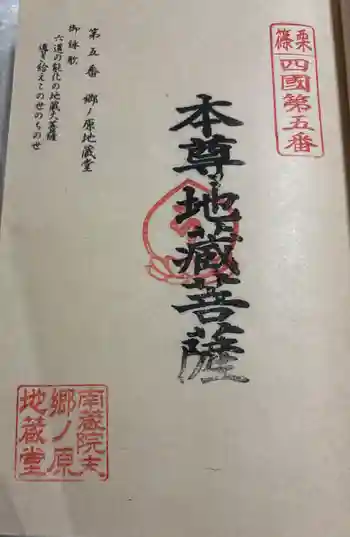 篠栗
四國第五番
本尊地蔵菩薩
第五番　郷ノ原地蔵堂
御詠歌
六道の能化の地蔵大菩薩
導き給えこのせのちのせ
南蔵院支
郷ノ原
地蔵堂